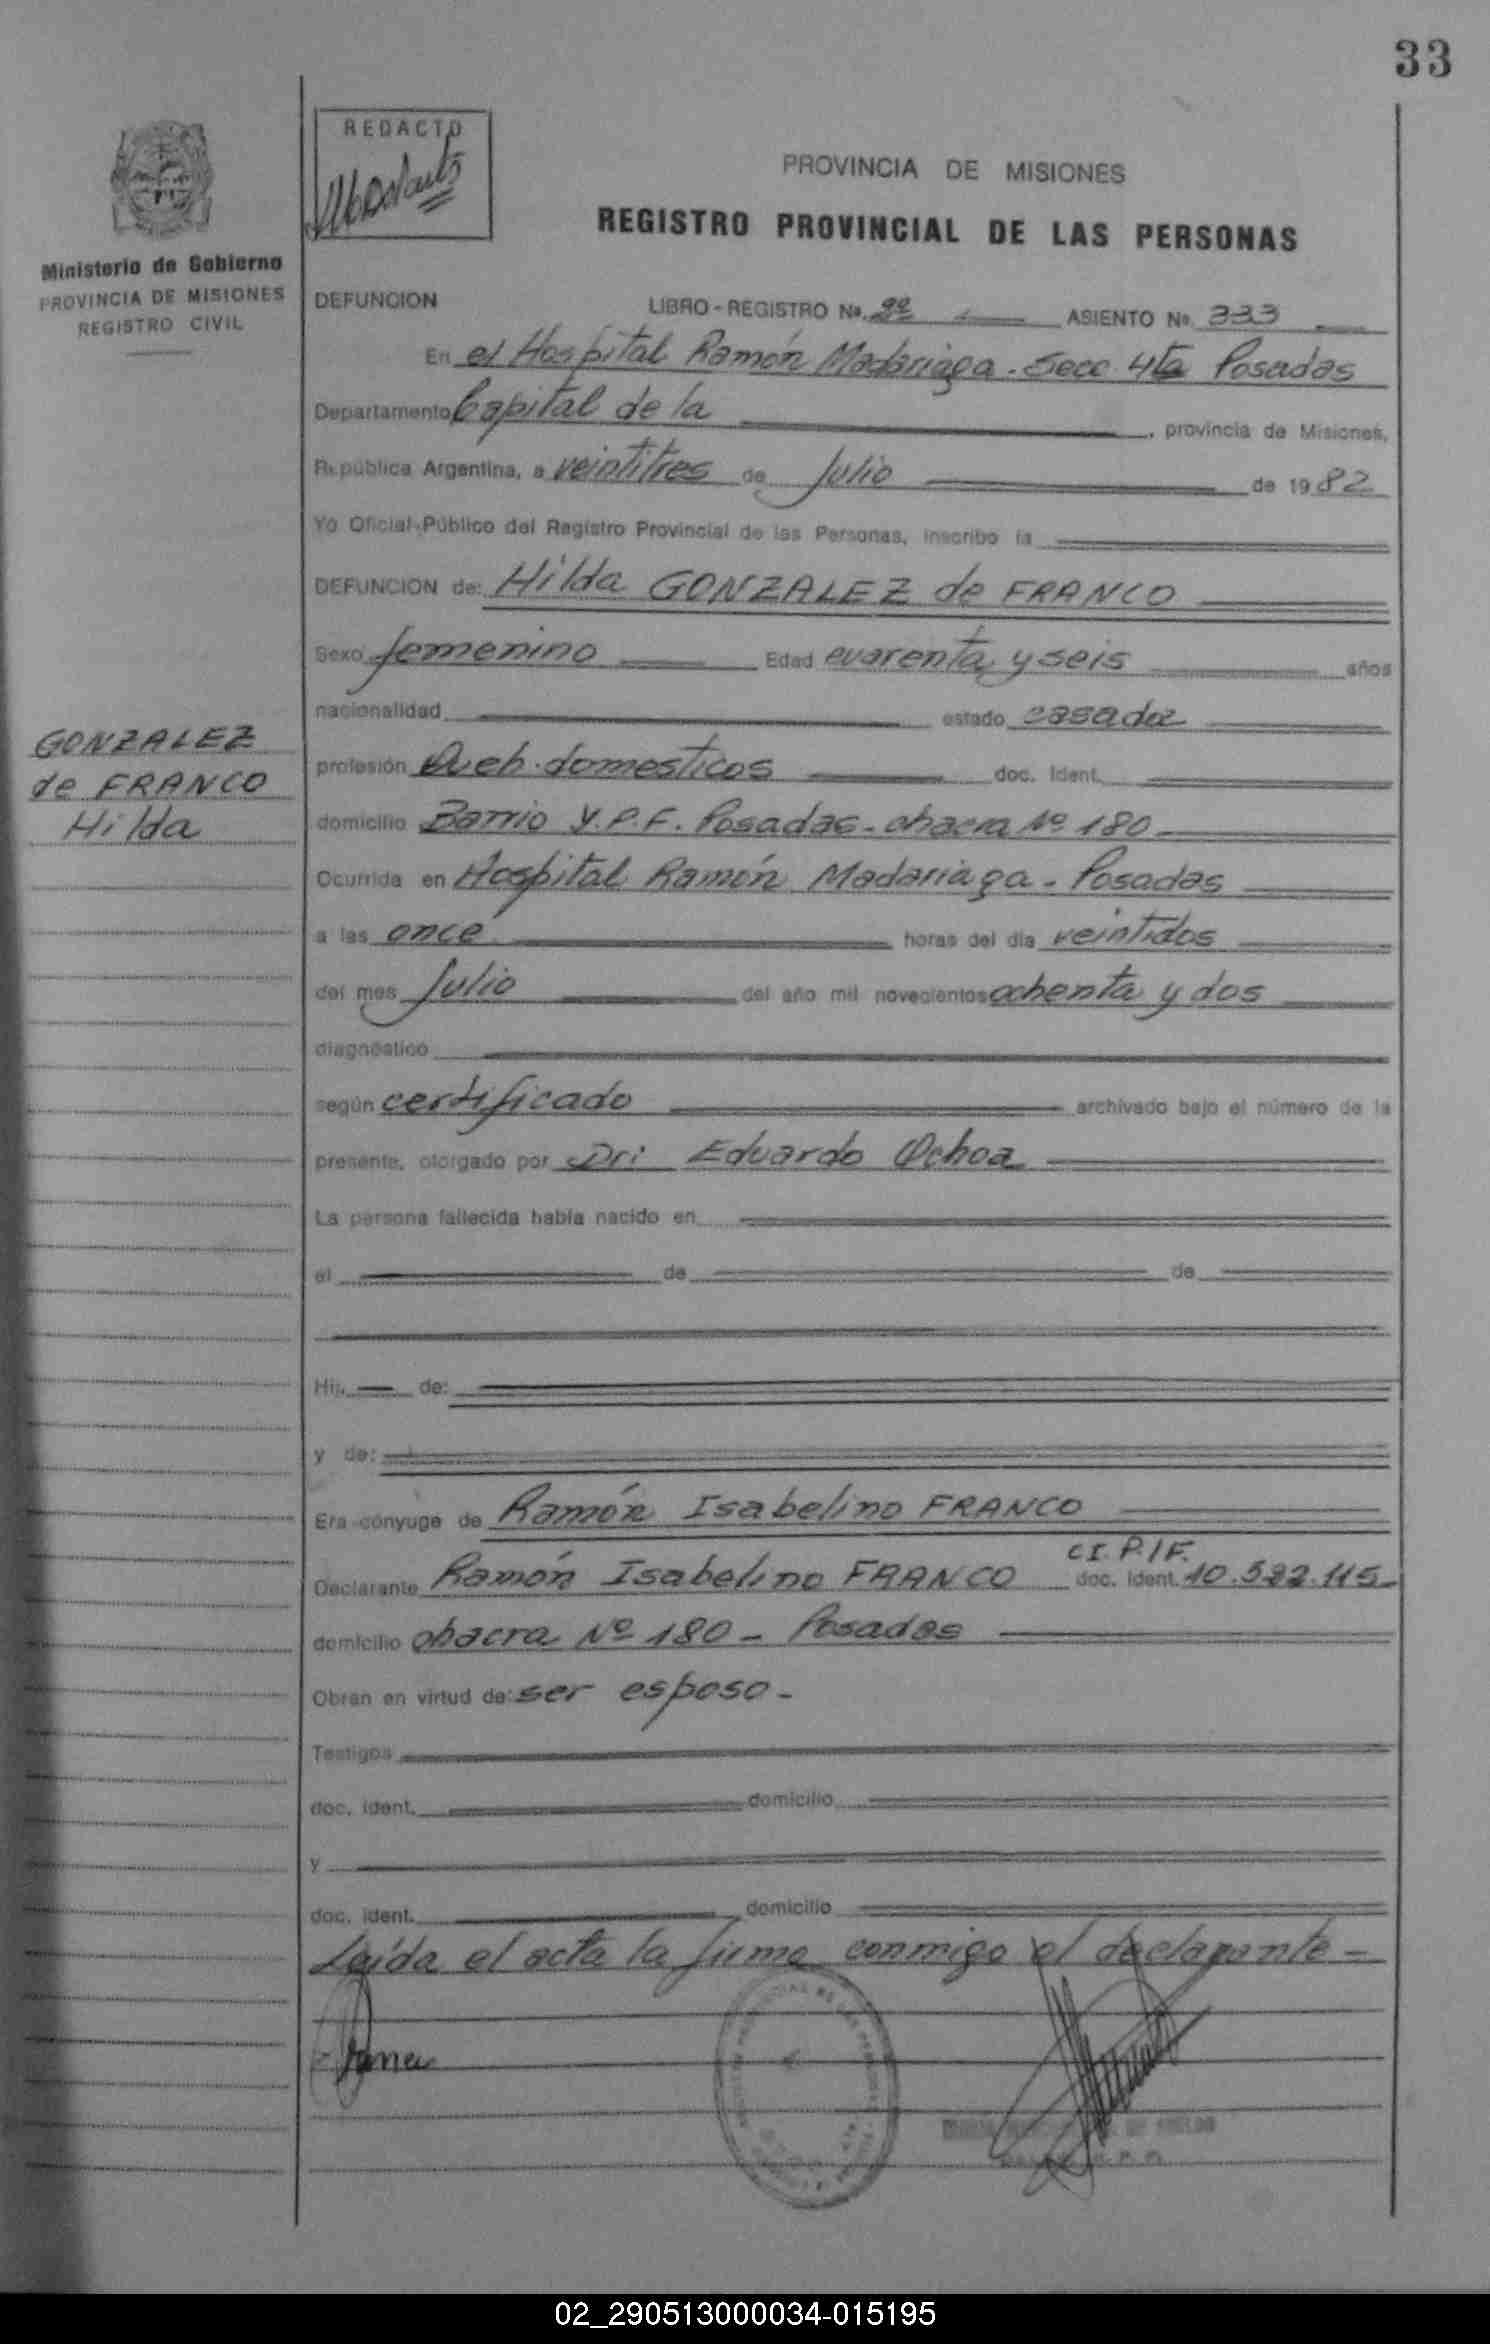 33
REDACTO
PROVINCIA DE MISIONES
REGISTRO PROVINCIAL DE LAS PERSONAS
Ministerio de Gobierno
PROVINCIA DE MISIONES
REGISTRO CIVIL
DEFUNCION LIBRO - REGISTRO Nº. 2º ASIENTO Nº. 333
En el Hospital Ramón Madariaga - Secc. 4ta Posadas
Departamento Capital de la , provincia de Misiones,
República Argentina, a veintitres de Julio de 1982
Yo Oficial Público del Registro Provincial de las Personas, inscribo la
DEFUNCION de: Hilda GONZALEZ de FRANCO
Sexo femenino Edad cuarenta y seis años
nacionalidad estado casada
GONZALEZ
de FRANCO
Hilda
profesión Queh. domesticos doc. ident.
domicilio Barrio Y.P.F. Posadas - chacra Nº 180 -
Ocurrida en Hospital Ramón Madariaga - Posadas
a las once horas del día veintidos
del mes Julio del año mil novecientos ochenta y dos
diagnóstico
según certificado archivado bajo el número de la
presente, otorgado por Dr: Eduardo Ochoa
La persona fallecida había nacido en
el de de
Hij de:
y de:
Era cónyuge de Ramón Isabelino FRANCO
C.I. P./F.
Declarante Ramón Isabelino FRANCO doc. ident. 10.522.115-
domicilio chacra Nº 180 - Posadas
Obran en virtud de: ser esposo -
Testigos
doc. ident. domicilio
y
doc. ident. domicilio
Leída el acta la firma conmigo el declarante -
02_290513000034-015195